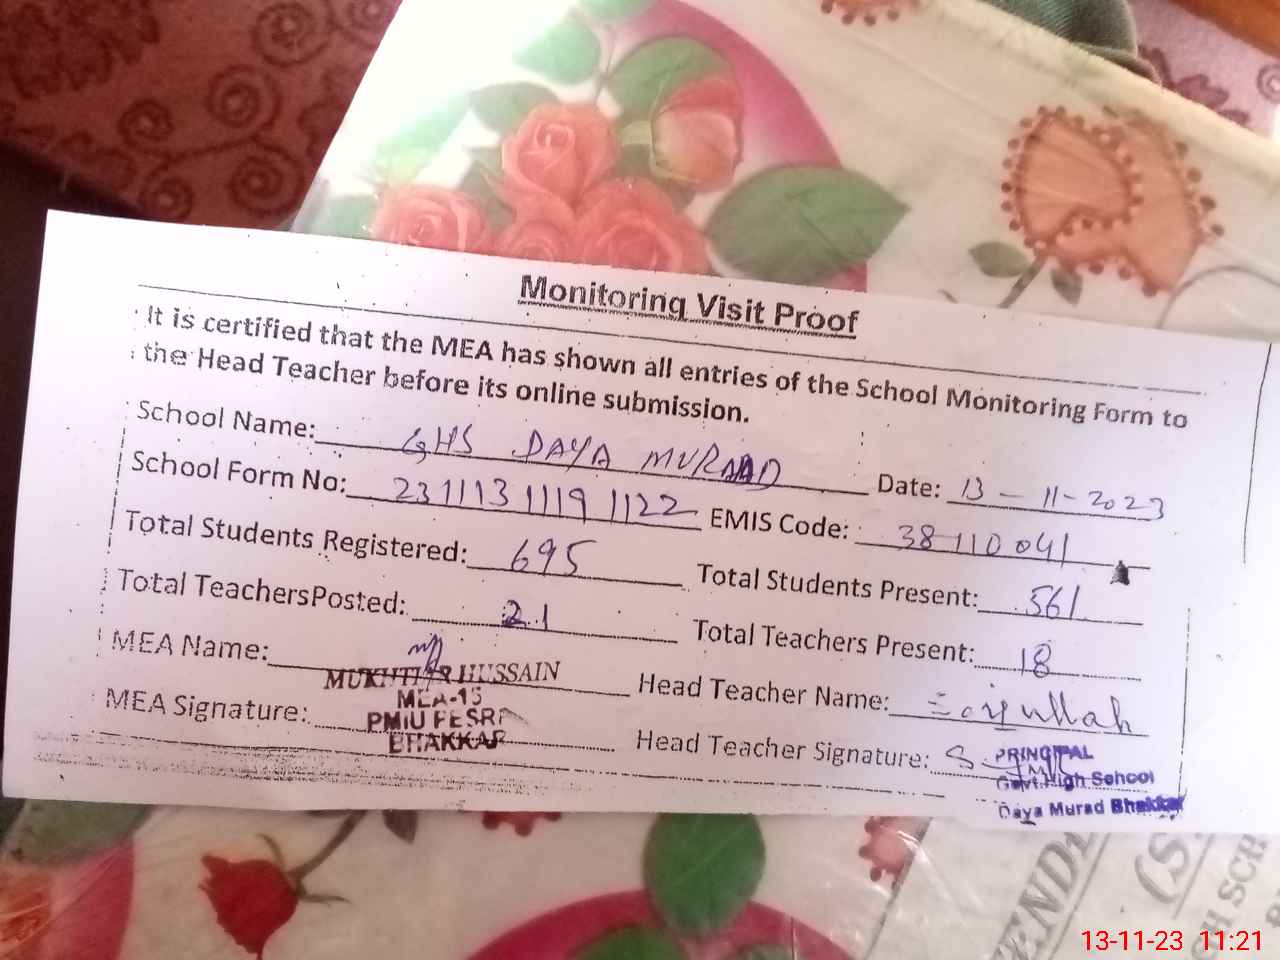 Monitoring Visit Proof
It is certified that the MEA has shown all entries of the School Monitoring Form to
the Head Teacher before its online submission.
School Name: GHS DAYA MURAD Date: 13-11-2023
School Form No: 2311131119 1122 EMIS Code: 38110041
Total Students Registered: 695 Total Students Present: 561
Total TeachersPosted: 21 Total Teachers Present: 18
MEA Name: Head Teacher Name:
MUKHTIAR HUSSAIN
MEA-15
MEA Signature: PMIU PESRP Head Teacher Signature:
BHAKKAR
PRINCIPAL
Govt. High School
Daya Murad Bhakkar
(S
CH SCH
13-11-23 11:21